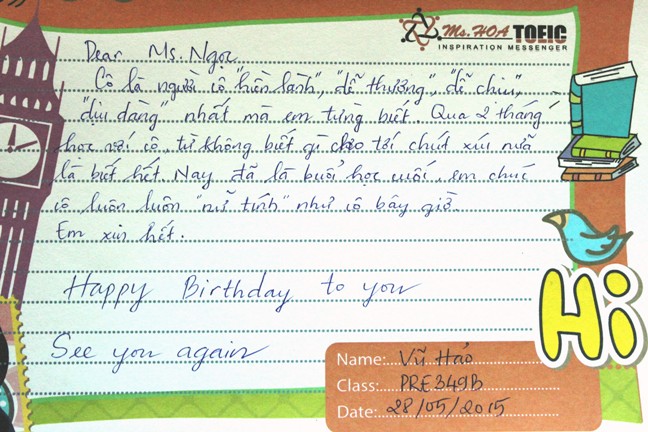 Ms. HOA TOEIC
INSPIRATION MESSENGER
Dear Ms. Ngọc
Cô là người cô "hiền lành", "dễ thương", "dễ chịu",
"dịu dàng" nhất mà em từng biết. Qua 2 tháng
học với cô, từ không biết gì cho tới chút xíu nữa
là biết hết. Nay đã là buổi học cuối, em chúc
cô luôn luôn "nữ tính" như cô bây giờ.
Em xin hết.
Happy Birthday to you
See you again
Hi
Name: Vũ Hảo
Class: PRE349B
Date: 28/05/2015